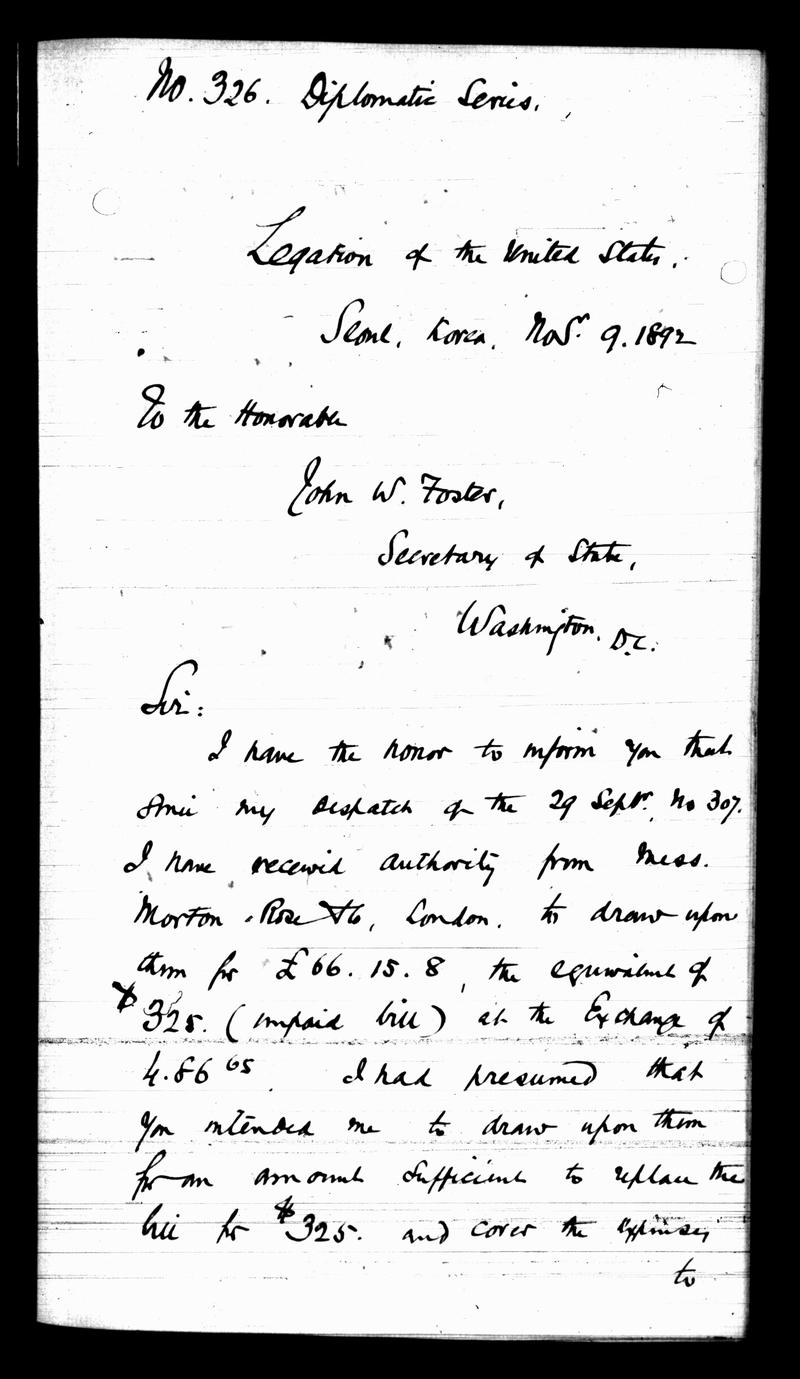 No. 326. Diplomatic Series.
Legation of the United States,
Seoul, Korea, Novr. 9. 1892
To the Honorable
John W. Foster,
Secretary of State,
Washington, D.C.
Sir:
I have the honor to inform you that
since my Despatch of the 29 Septr. No 307.
I have received authority from Mess.
Morton, Rose & Co, London, to draw upon
them for £66. 15. 8, the equivalent of
$325. (unpaid bill) at the Exchange of
4.86 65. I had presumed that
you intended me to draw upon them
for an amount sufficient to replace the
bill for $325. and cover the expenses
to